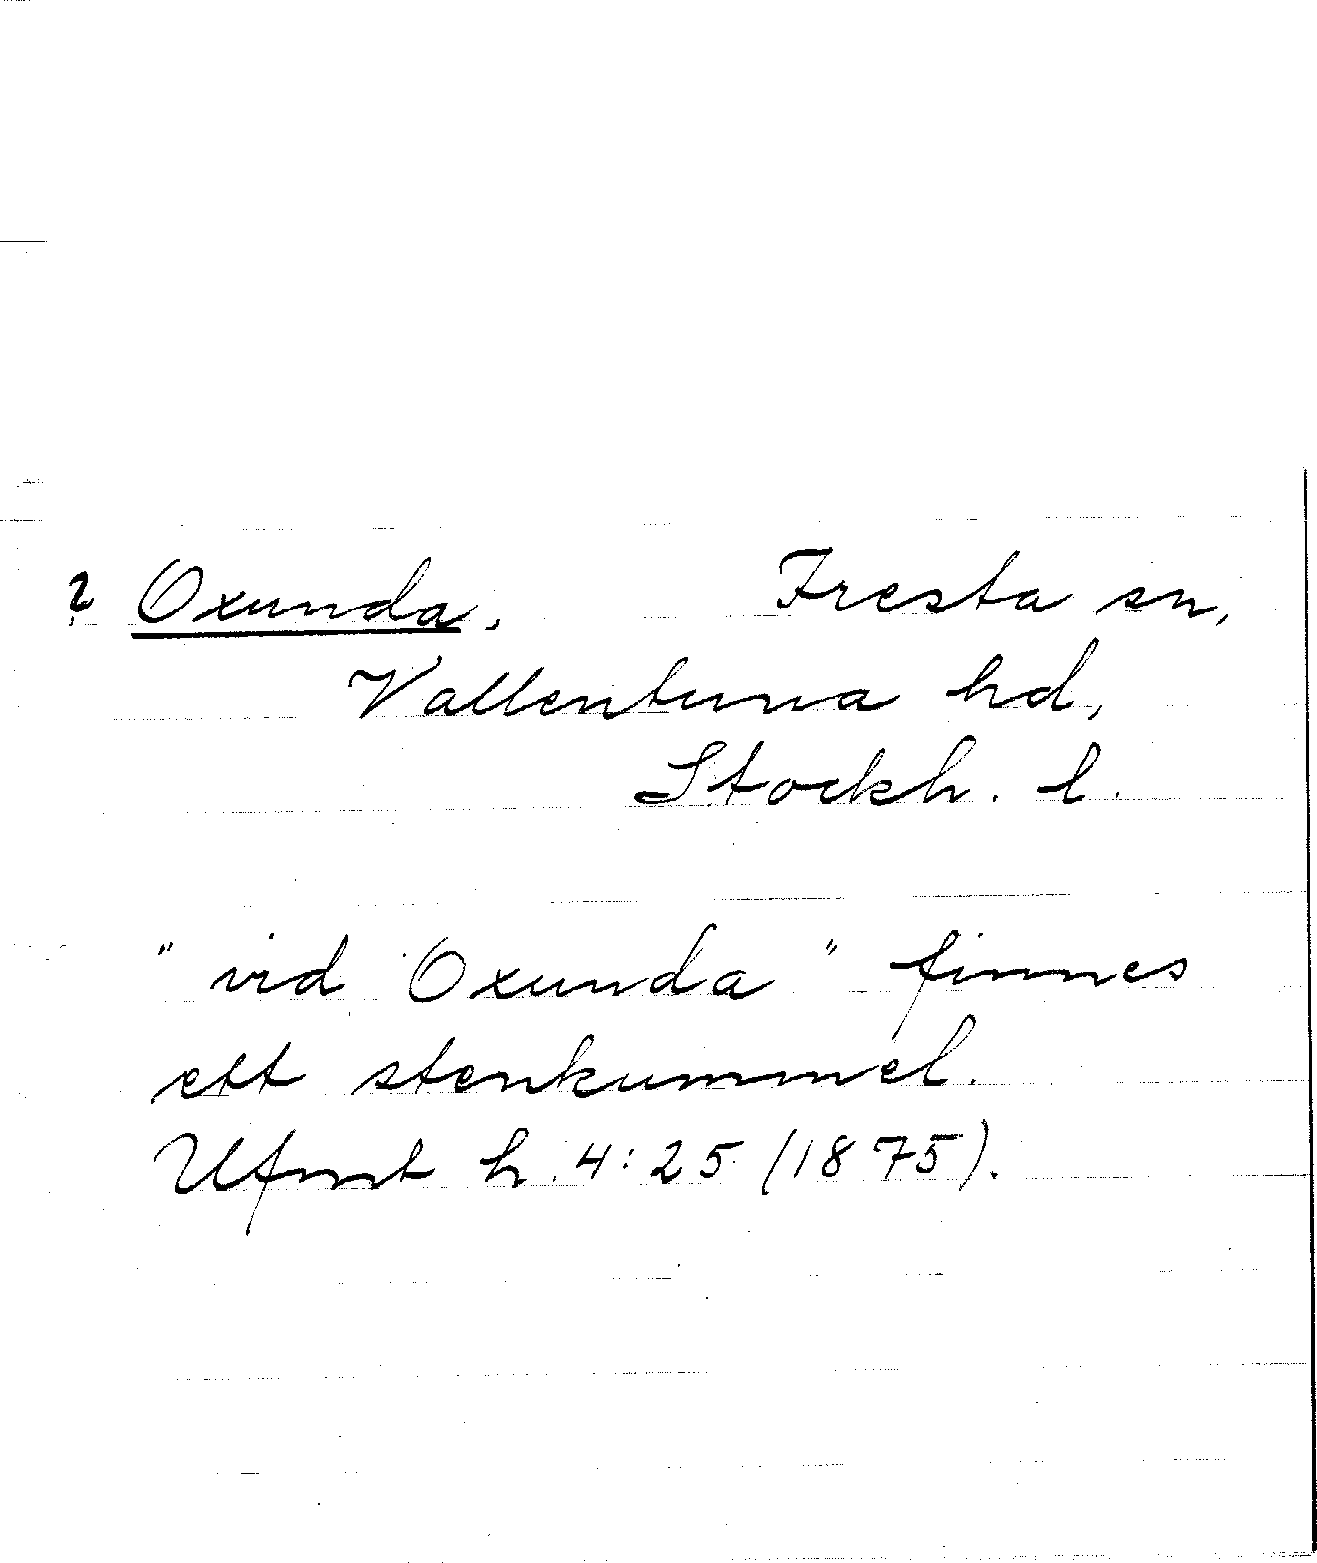 ? Oxunda. Fresta sn,
Vallentuna hd,
Stockh. l.
"vid Oxunda" finnes
ett stenkummel.
Ufmt h. 4:25 (1875).